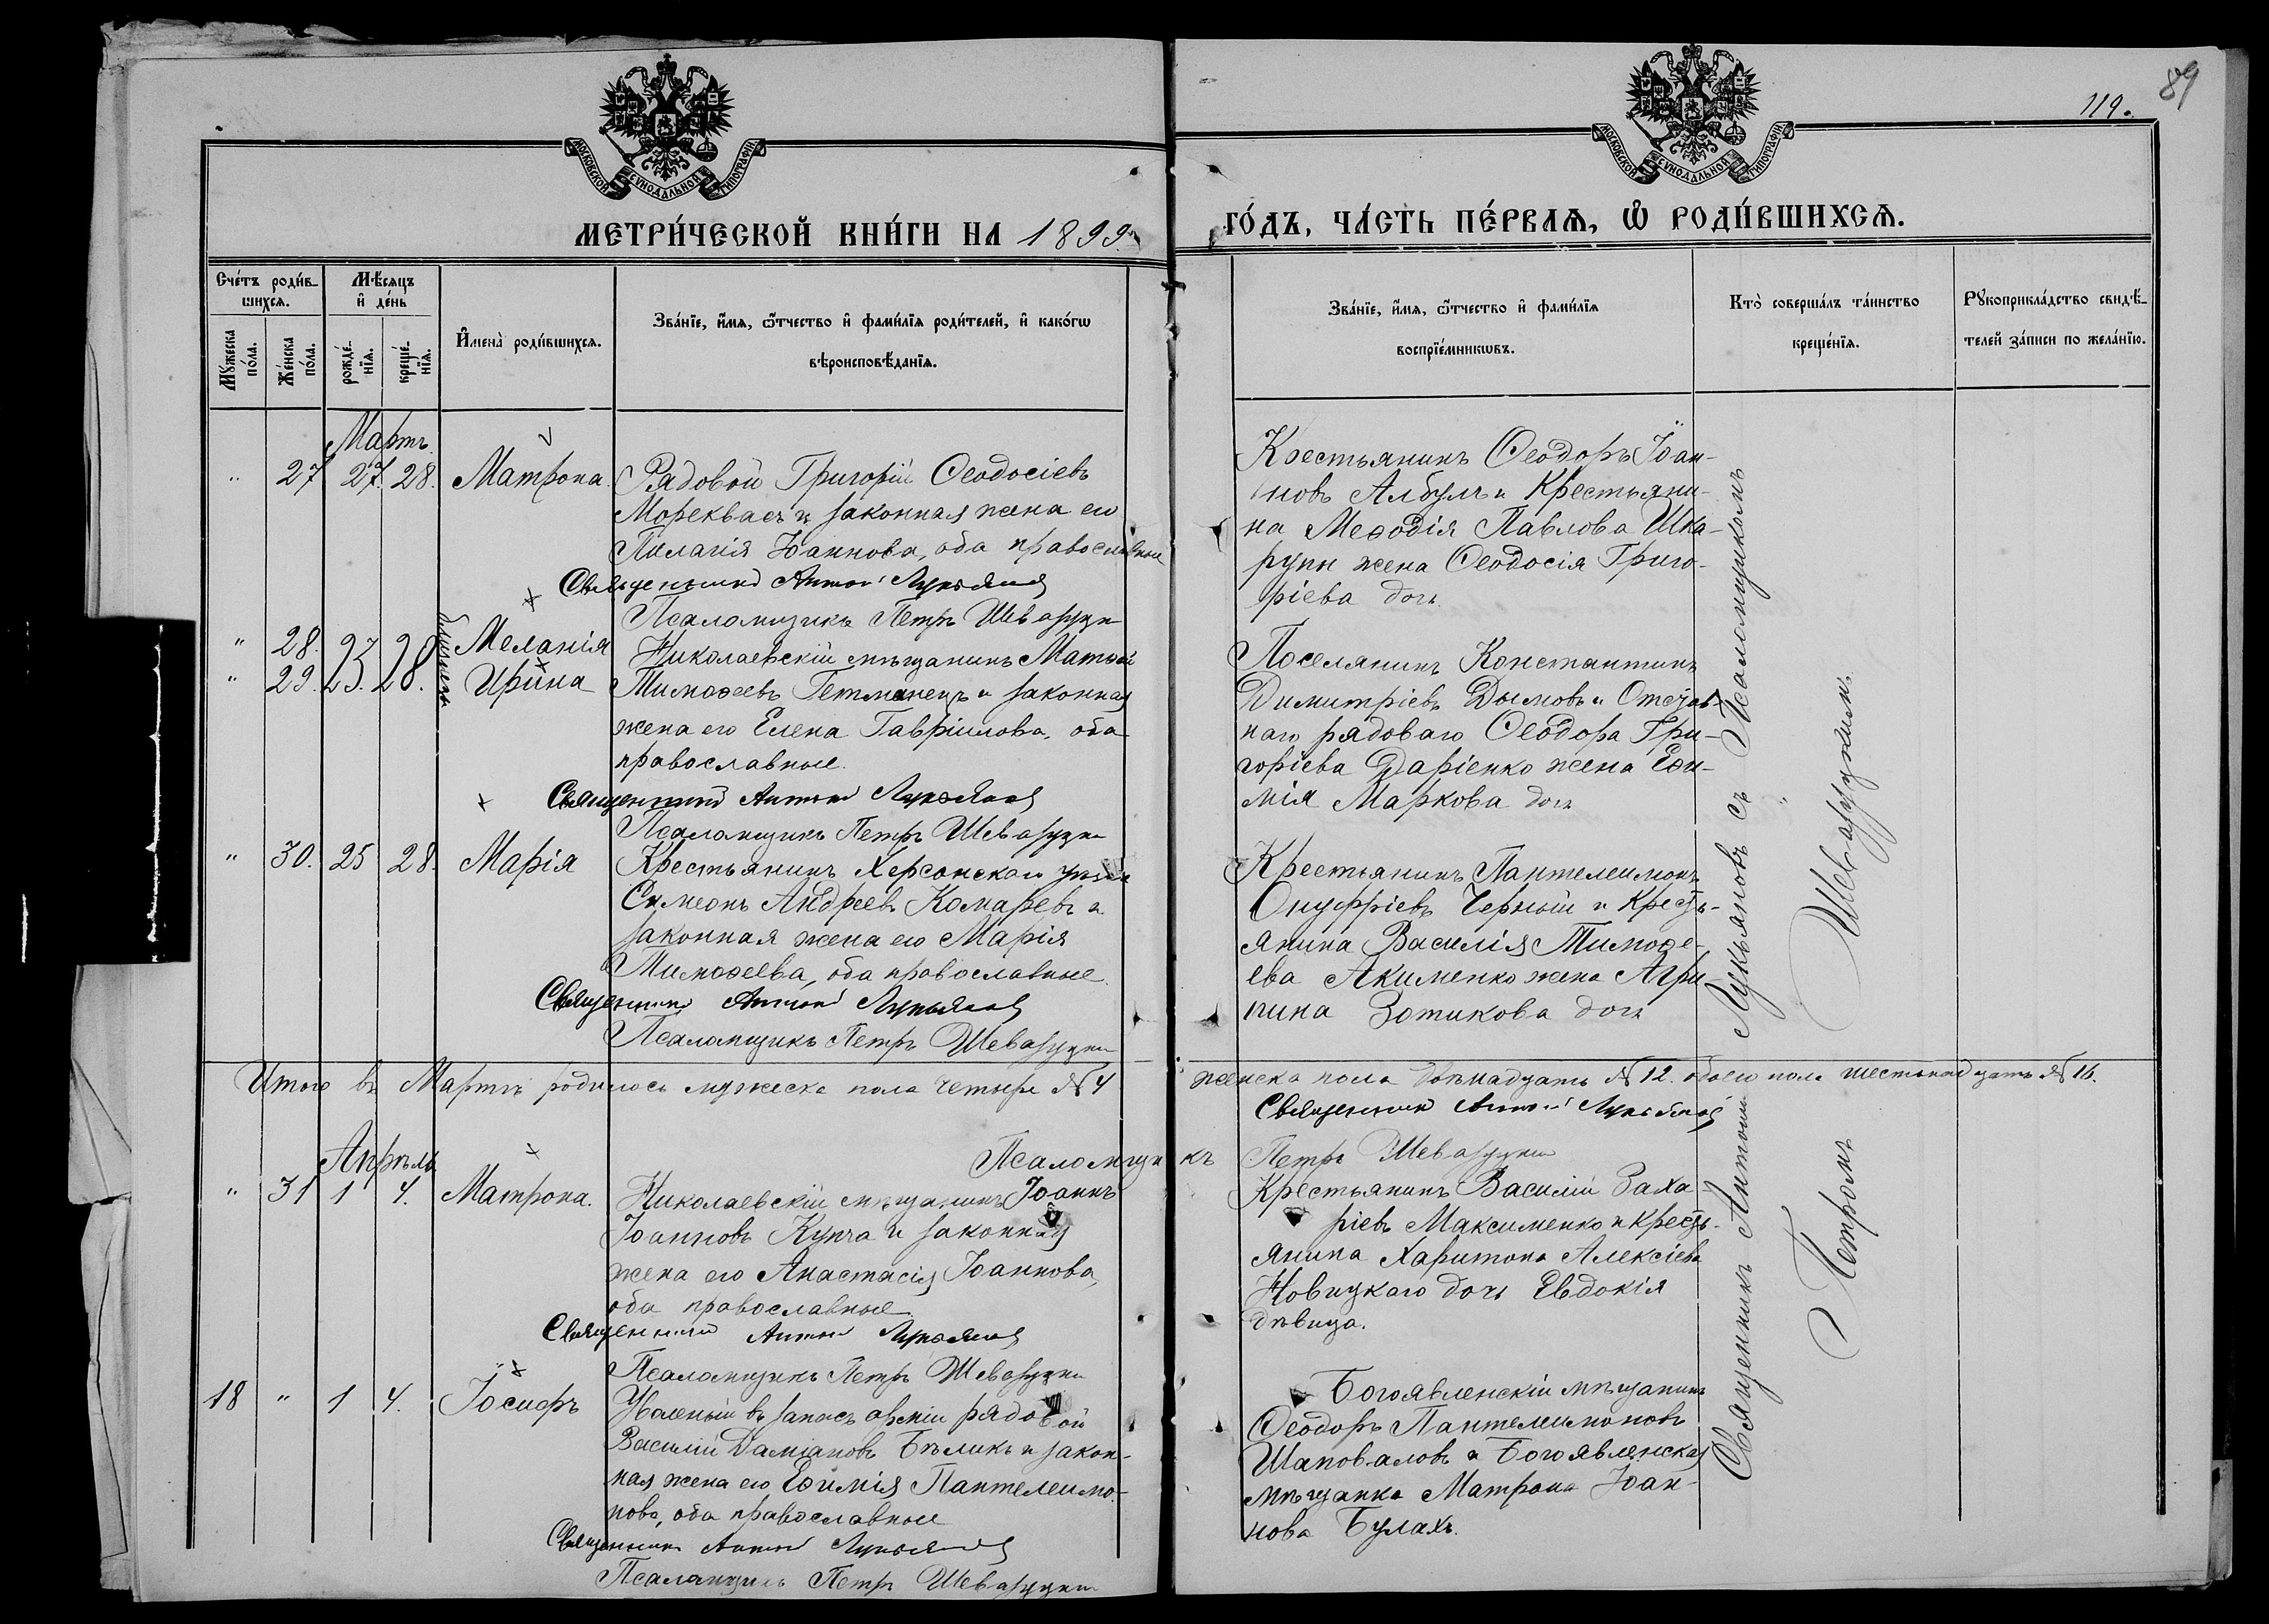 89
119.
МОСКОВСКОЙ СѴНОДАЛЬНОЙ ТИПОГРАФІИ
МОСКОВСКОЙ СѴНОДАЛЬНОЙ ТИПОГРАФІИ
МЕТРИ́ЧЕСКОЙ КНИ́ГИ НА 1899.
ГО́ДЪ, ЧА́СТЬ ПЕ́РВАѦ, Ѿ РОДИ́ВШИХСѦ.
Сче́тъ роди́в-
шихсѧ.
Мꙋ́жеска по́ла.
Же́нска по́ла.
Мѣ́сѧцъ
и҆ де́нь
рожде́-нїѧ.
креще́-нїѧ.
И҆мена̀ роди́вшихсѧ.
Зва́нїе, и҆́мѧ, ѻ҆́тчество и҆ фами́лїѧ роди́телей, и҆ како́гѡ
вѣроисповѣ́данїѧ.
Зва́нїе, и҆́мѧ, ѻ҆́тчество и҆ фами́лїѧ
воспрїе́мникѡвъ.
Кто̀ соверша́лъ та́инство
креще́нїѧ.
Рꙋкоприкла́дство свидѣ́-
телей за́писи по жела́нїю.
Мартъ
" 27 27. 28. Матрона.
Рядовой Григорій Ѳеодосіевъ
Мореквасъ и законная жена его
Пелагія Іоаннова, оба православные
Священникъ Антоній Лукьяновъ
Псаломщикъ Петръ Шеварузкин
Крестьянинъ Ѳеодоръ Іоан-
новъ Албулъ и Крестьяни-
на Меѳодія Павлова Шка-
рупы жена Ѳеодосія Григо-
ріева дочь
" 28. Меланія
" 29. 25. 28. близнецы Ирина
Николаевскій мѣщанинъ Матѳей
Тимоѳеевъ Гетманецъ и законная
жена его Елена Гавріилова, оба
православные.
Священникъ Антоній Лукьяновъ
Псаломщикъ Петръ Шеварузкин
Поселянинъ Константинъ
Димитріевъ Дымовъ и Отстав-
наго рядоваго Ѳеодора Гри-
горіева Даріенко жена Еѳи-
мія Маркова дочь
" 30. 25 28. Марія
Крестьянинъ Херсонскаго уѣзда
Симеонъ Андреевъ Комаревъ и
законная жена его Марія
Тимоѳеева, оба православные.
Священникъ Антоній Лукьяновъ
Псаломщикъ Петръ Шеварузкин
Крестьянинъ Пантелеимонъ
Онуфріевъ Черный и Кресть-
янина Василія Тимоѳе-
ева Акименко жена Агри-
пина Зотикова дочь
Итого въ Мартѣ родилось мужеска пола четыре № 4 женска пола двѣнадцать № 12. обоего пола шестнадцать № 16.
Священникъ Антоній Лукьяновъ
Псаломщикъ Петръ Шеварузкин
Апрѣль
" 31 1 4. Матрона.
Николаевскій мѣщанинъ Іоаннъ
Іоанновъ Купча и законная
жена его Анастасія Іоаннова,
оба православные
Священникъ Антоній Лукьяновъ
Псаломщикъ Петръ Шеварузкин
Крестьянинъ Василій Заха-
ріевъ Максименко и кресть-
янина Харитона Алексіева
Новицкаго дочь Евдокія
дѣвица.
18 " 1 4. Іосифъ
Уволеный въ запасъ арміи рядовой
Василій Даміановъ Бѣликъ и закон-
ная жена его Еѳимія Пантелеимо-
нова, оба православные
Священникъ Антоній Лукьяновъ
Псаломщикъ Петръ Шеварузкин
Богоявленскій мѣщанинъ
Ѳеодоръ Пантелеимоновъ
Шаповаловъ и Богоявленская
мѣщанка Матрона Іоан-
нова Булахъ.
Священникъ Антоній Лукьяновъ съ Псаломщикомъ
Петромъ Шеварузкинъ